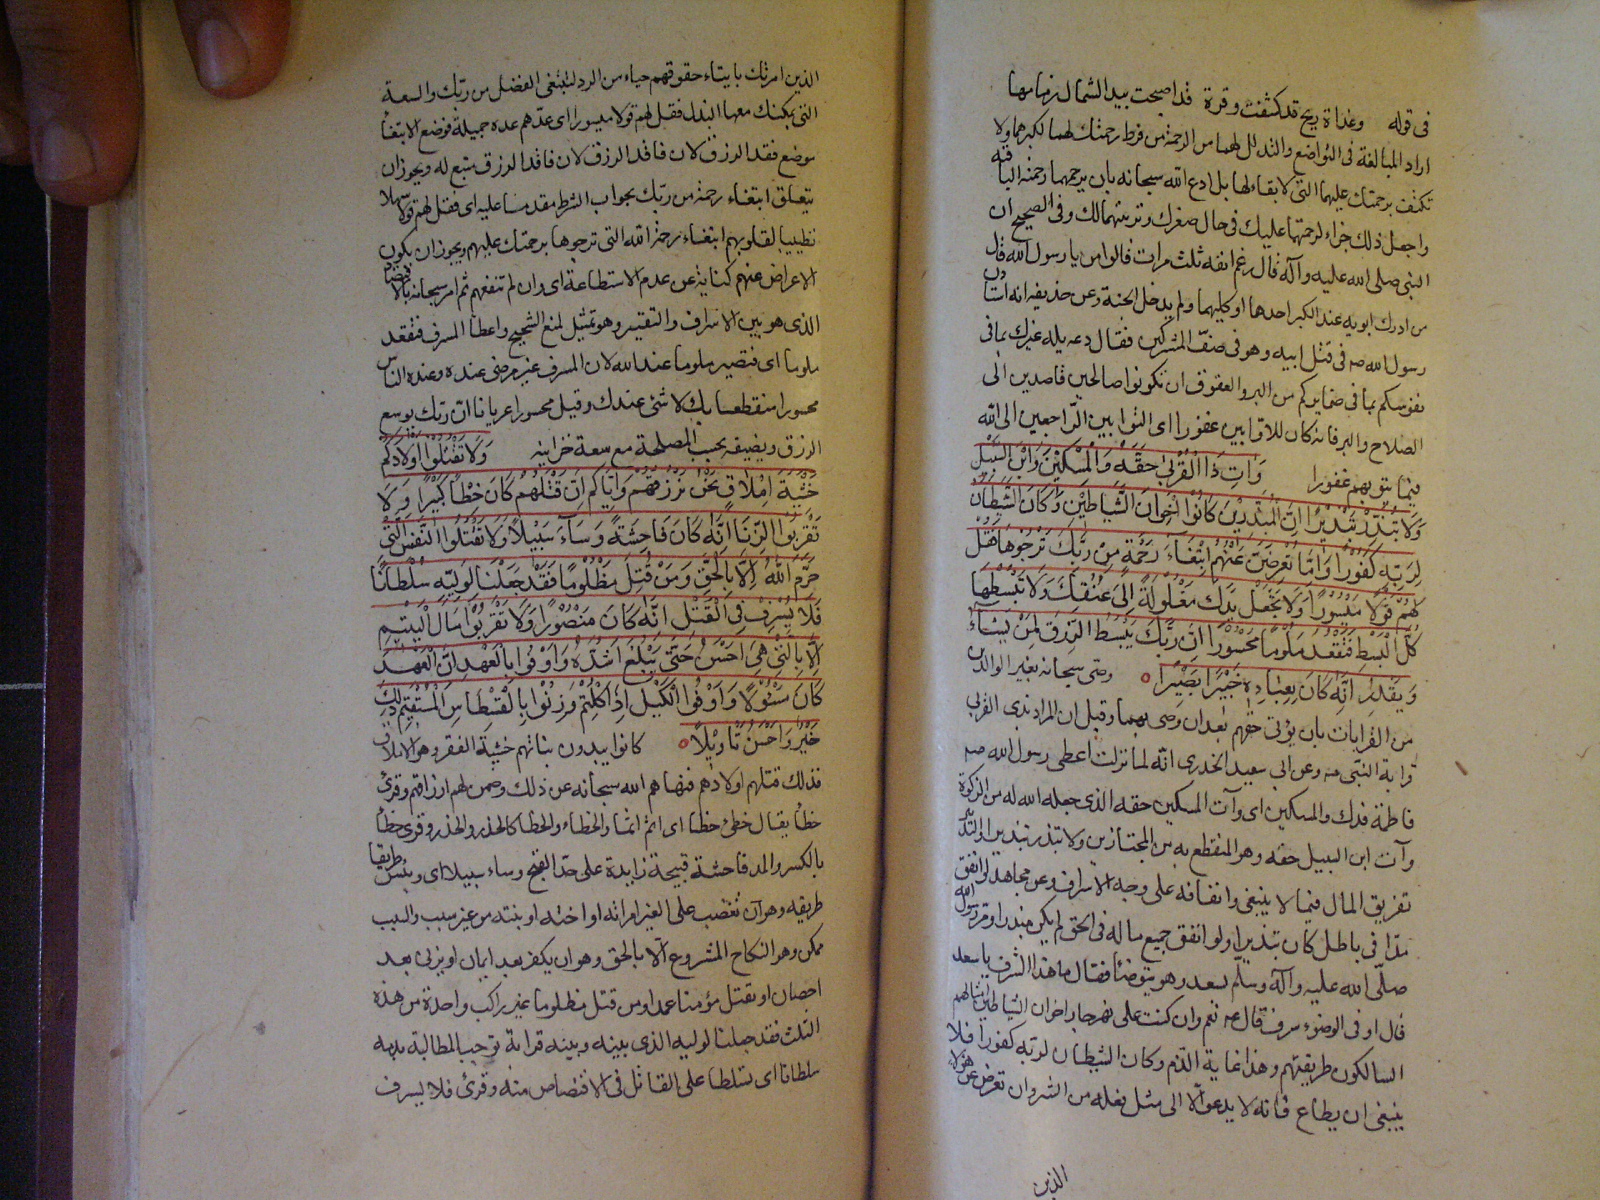 فى قوله وغداة ريح قد كشفت وقرة قد اصبحت بيد الشمال زمامها
اراد المبالغة فى التواضع والتذلل لهما من الرحمة من فرط رحمتك لهما لكبرهما ولا
تكتف برحمتك عليهما التى لا بقاء لها بل ادع الله سبحانه بان يرحمهما رحمة الباقية
واجعل ذلك جزاء لرحمتهما عليك فى حال صغرك وتربيتهما لك وفى الصحيح ان
النبى صلى الله عليه وآله قال رغم انفه ثلث مرات قالوا من يا رسول الله قال
من ادرك ابويه عند الكبر احدهما او كليهما ولم يدخل الجنة وعن حذيفه انه استاذن
رسول الله صم فى قتل ابيه وهو فى صف المشركين فقال دعه يله غيرك بما فى
نفوسكم بما فى ضمايركم من البر والعقوق ان تكونوا صالحين قاصدين الى
الصلاح والبر فانه كان للاوابين غفورا اى التوابين الراجعين الى الله
فيما ينوبهم غفورا وَاتِ ذَا الْقُرْبىٰ حَقَّهُ وَالْمِسْكِيْنَ وَابْنَ السَّبِيْلِ
وَلَا تُبَذِّرْ تَبْذِيْرًا اِنَّ الْمُبَذِّرِيْنَ كَانُوْا اِخْوَانَ الشَّيَاطِيْنِ وَكَانَ الشَّيْطَانُ
لِرَبِّهِ كَفُوْرًا وَاِمَّا تُعْرِضَنَّ عَنْهُمُ ابْتِغَاءَ رَحْمَةٍ مِنْ رَبِّكَ تَرْجُوْهَا فَقُلْ
لَهُمْ قَوْلًا مَيْسُوْرًا وَلَا تَجْعَلْ يَدَكَ مَغْلُوْلَةً اِلىٰ عُنُقِكَ وَلَا تَبْسُطْهَا
كُلَّ الْبَسْطِ فَتَقْعُدَ مَلُوْمًا مَحْسُوْرًا اِنَّ رَبَّكَ يَبْسُطُ الرِّزْقَ لِمَنْ يَشَآءُ
وَيَقْدِرُ اِنَّهُ كَانَ بِعِبَادِهِ خَبِيْرًا بَصِيْرًا وصى سبحانه بغير الوالدين
من القرابات بان يؤتى حقهم بعد ان وصى بهما وقيل ان المراد بذى القربى
قرابة النبى صم وعن ابى سعيد الخدرى انه لما نزلت اعطى رسول الله صم
فاطمة فدك والمسكين اى وآت المسكين حقه الذى جعله الله له من الزكوة
وآت ابن السبيل حقه وهو المنقطع به من المجتازين ولا تبذر تبذيرا والتبذير
تفريق المال فيما لا ينبغى وانفاقه على وجه الاسراف وعن مجاهد لو انفق
مدّا فى باطل كان تبذيرا ولو انفق جميع ماله فى الحق لم يكن مبذرا ومر رسول الله
صلى الله عليه وآله وسلم بسعد وهو يتوضأ فقال ما هذا السرف يا سعد
قال او فى الوضوء سرف قال عم نعم وان كنت على نهر جار اخوان الشياطين امثالهم
السالكون طريقتهم وهذا غاية الذم وكان الشيطان لربه كفورا فلا
ينبغى ان يطاع فانه لا يدعو الا الى مثل فعله من الشر وان تعرض عن هؤلاء
الذين
الذين امرتك بايتاء حقوقهم حياء من الرد لتبتغى الفضل من ربك والسعة
التى يمكنك معها البذل فقل لهم قولا ميسورا اى عدهم عدة جميلة فوضع الابتغاء
موضع فقد الرزق لان فاقد الرزق مبتغ له ويجوز ان
يتعلق ابتغاء رحمة من ربك بجواب الشرط مقدما عليه اى فقل لهم قولا سهلا
تطييبا لقلوبهم ابتغاء رحمة الله التى ترجوها برحمتك عليهم ويجوز ان يكون
الاعراض عنهم كناية عن عدم الاستطاعة اى وان لم تنفعهم ثم امر سبحانه بالاقتصاد
الذى هو بين الاسراف والتقتير وهو تمثيل لمنع الشحيح واعطاء المسرف فتقعد
ملوما اى فتصير ملوما عند الله لان المسرف غير مرضى عنده وعند الناس
محسورا منقطعا بك لا شئ عندك وقيل محسورا عريانا ان ربك يوسع
الرزق ويضيقه بحسب المصلحة مع سعة خزاينه وَلَا تَقْتُلُوْا اَوْلَادَكُمْ
خَشْيَةَ اِمْلَاقٍ نَحْنُ نَرْزُقُهُمْ وَاِيَّاكُمْ اِنَّ قَتْلَهُمْ كَانَ خِطْأً كَبِيْرًا وَلَا
تَقْرَبُوْا الزِّنَا اِنَّهُ كَانَ فَاحِشَةً وَسَآءَ سَبِيْلًا وَلَا تَقْتُلُوْا النَّفْسَ الَّتِىْ
حَرَّمَ اللهُ اِلَّا بِالْحَقِّ وَمَنْ قُتِلَ مَظْلُوْمًا فَقَدْ جَعَلْنَا لِوَلِيِّهِ سُلْطَانًا
فَلَا يُسْرِفْ فِى الْقَتْلِ اِنَّهُ كَانَ مَنْصُوْرًا وَلَا تَقْرَبُوْا مَالَ الْيَتِيْمِ
اِلَّا بِالَّتِىْ هِىَ اَحْسَنُ حَتّٰى يَبْلُغَ اَشُدَّهُ وَاَوْفُوْا بِالْعَهْدِ اِنَّ الْعَهْدَ
كَانَ مَسْئُوْلًا وَاَوْفُوا الْكَيْلَ اِذَا كِلْتُمْ وَزِنُوْا بِالْقِسْطَاسِ الْمُسْتَقِيْمِ ذٰلِكَ
خَيْرٌ وَاَحْسَنُ تَاْوِيْلًا كانوا يبدون بناتهم خشية الفقر وهو الاملاق
فذلك قتلهم اولادهم فنهاهم الله سبحانه عن ذلك وضمن لهم ارزاقهم وقرئ
خطأ يقال خطئ خطأ اى اثم اثما والخطاء والخطا كالحذر والحذر وقرئ خطأ
بالكسر والمد فاحشة قبيحة زايدة على حد القبح وساء سبيلا اى وبئس طريقا
طريقه وهو ان تغصب على الغير امراته او اخته او بنته من غير سبب والسبب
ممكن وهو النكاح المشروع الا بالحق وهو ان يكفر بعد ايمان او يزنى بعد
احصان او يقتل مؤمنا عمدا ومن قتل مظلوما غير راكب واحدة من هذه
الثلث فقد جعلنا لوليه الذى بينه وبينه قرابة توجب المطالبة بدمه
سلطانا اى تسلطا على القاتل فى الاقتصاص منه وقرئ فلا يسرف